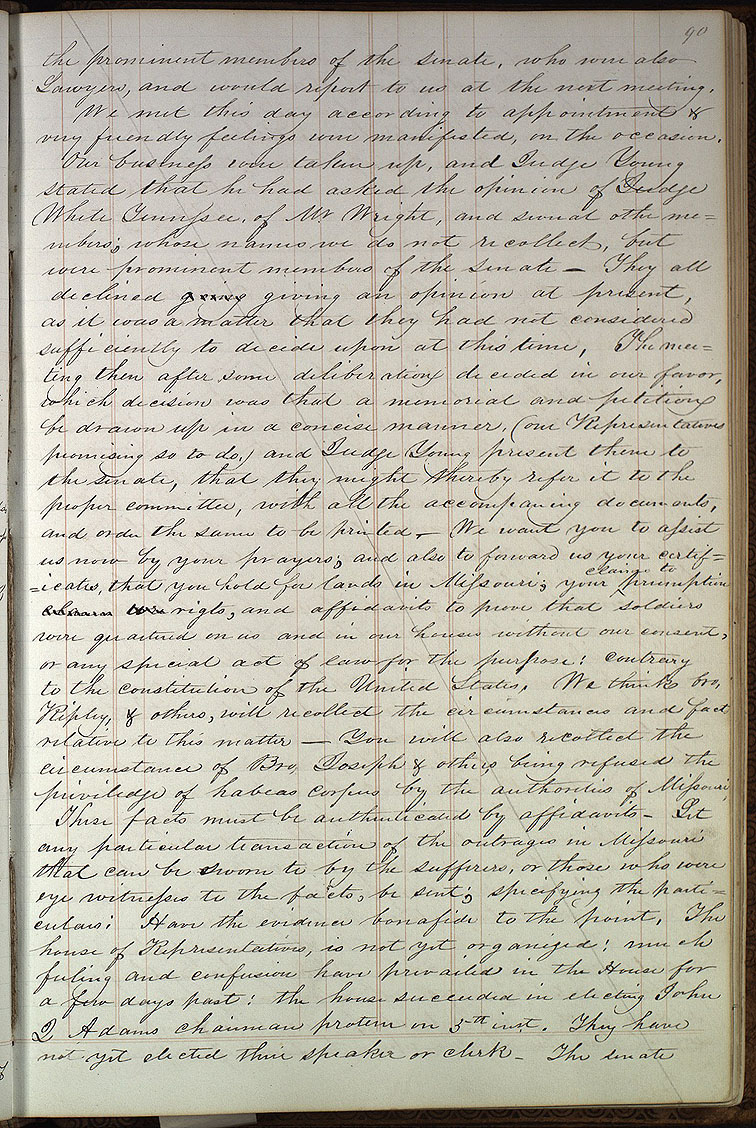 90
the prominent members of the senate, who were also
Lawyers, and would report to us at the next meeting.
We met this day according to appointment &
very friendly feelings were manifested, on the occasion.
Our business were taken up, and Judge Young
stated that he had asked the opinion of Judge
White Tennessee, of Mr Wright, and several othe me=
mbers; whose names we do not recollect, but
were prominent members of the senate — They all
declined giving an opinion at present,
as it was a matter that they had not considered
sufficiently to decide upon at this time, The mee=
ting then after some deliberation decided in our favor,
which decision was that a memorial and petition
be drawn up in a concise manner, (our Representatives
promising so to do,) and Judge Young present them to
the senate, that they might thereby refer it to the
proper committee, with all the accompaning documents,
and order the same to be printed — We want you to assist
us now by your prayers; and also to forward us your certif=
claims to
=icates, that you hold for lands in Missouri; your premption
rigts, and affidavits to prove that soldiers
were quartered on us and in our houses without our consent,
or any special act of law for the purpose: contrary
to the constitution of the United States. We think bro,
Ripley, & others, will recollect the circumstances and fact
relative to this matter — You will also recollect the
circumstance of Bro, Joseph & others being refused the
priviledge of habeas corpus by the authorities of Missouri,
These facts must be authenticated by affidavits — Let
any particular transaction of the outrages in Missouri
that can be sworn to by the sufferers, or those who were
eye witnesses to the facts, be sent; specifying the parti=
culars: Have the evidence bonafide to the point. The
house of Representatives, is not yet organized: much
feeling and confusion have prevailed in the House for
a few days past: the house succeeded in electing John
Q Adams chairman protem on 5th inst. They have
not yet elected their speaker or clerk — The senate